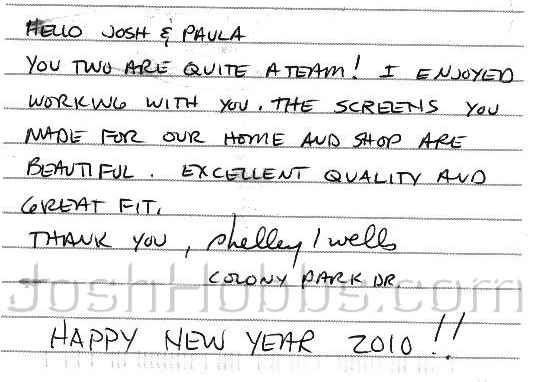 HELLO JOSH & PAULA
YOU TWO ARE QUITE A TEAM! I ENJOYED
WORKING WITH YOU. THE SCREENS YOU
MADE FOR OUR HOME AND SHOP ARE
BEAUTIFUL. EXCELLENT QUALITY AND
GREAT FIT.
THANK YOU, Shelley / wells
COLONY PARK DR
JoshHobbs.com
HAPPY NEW YEAR 2010!!